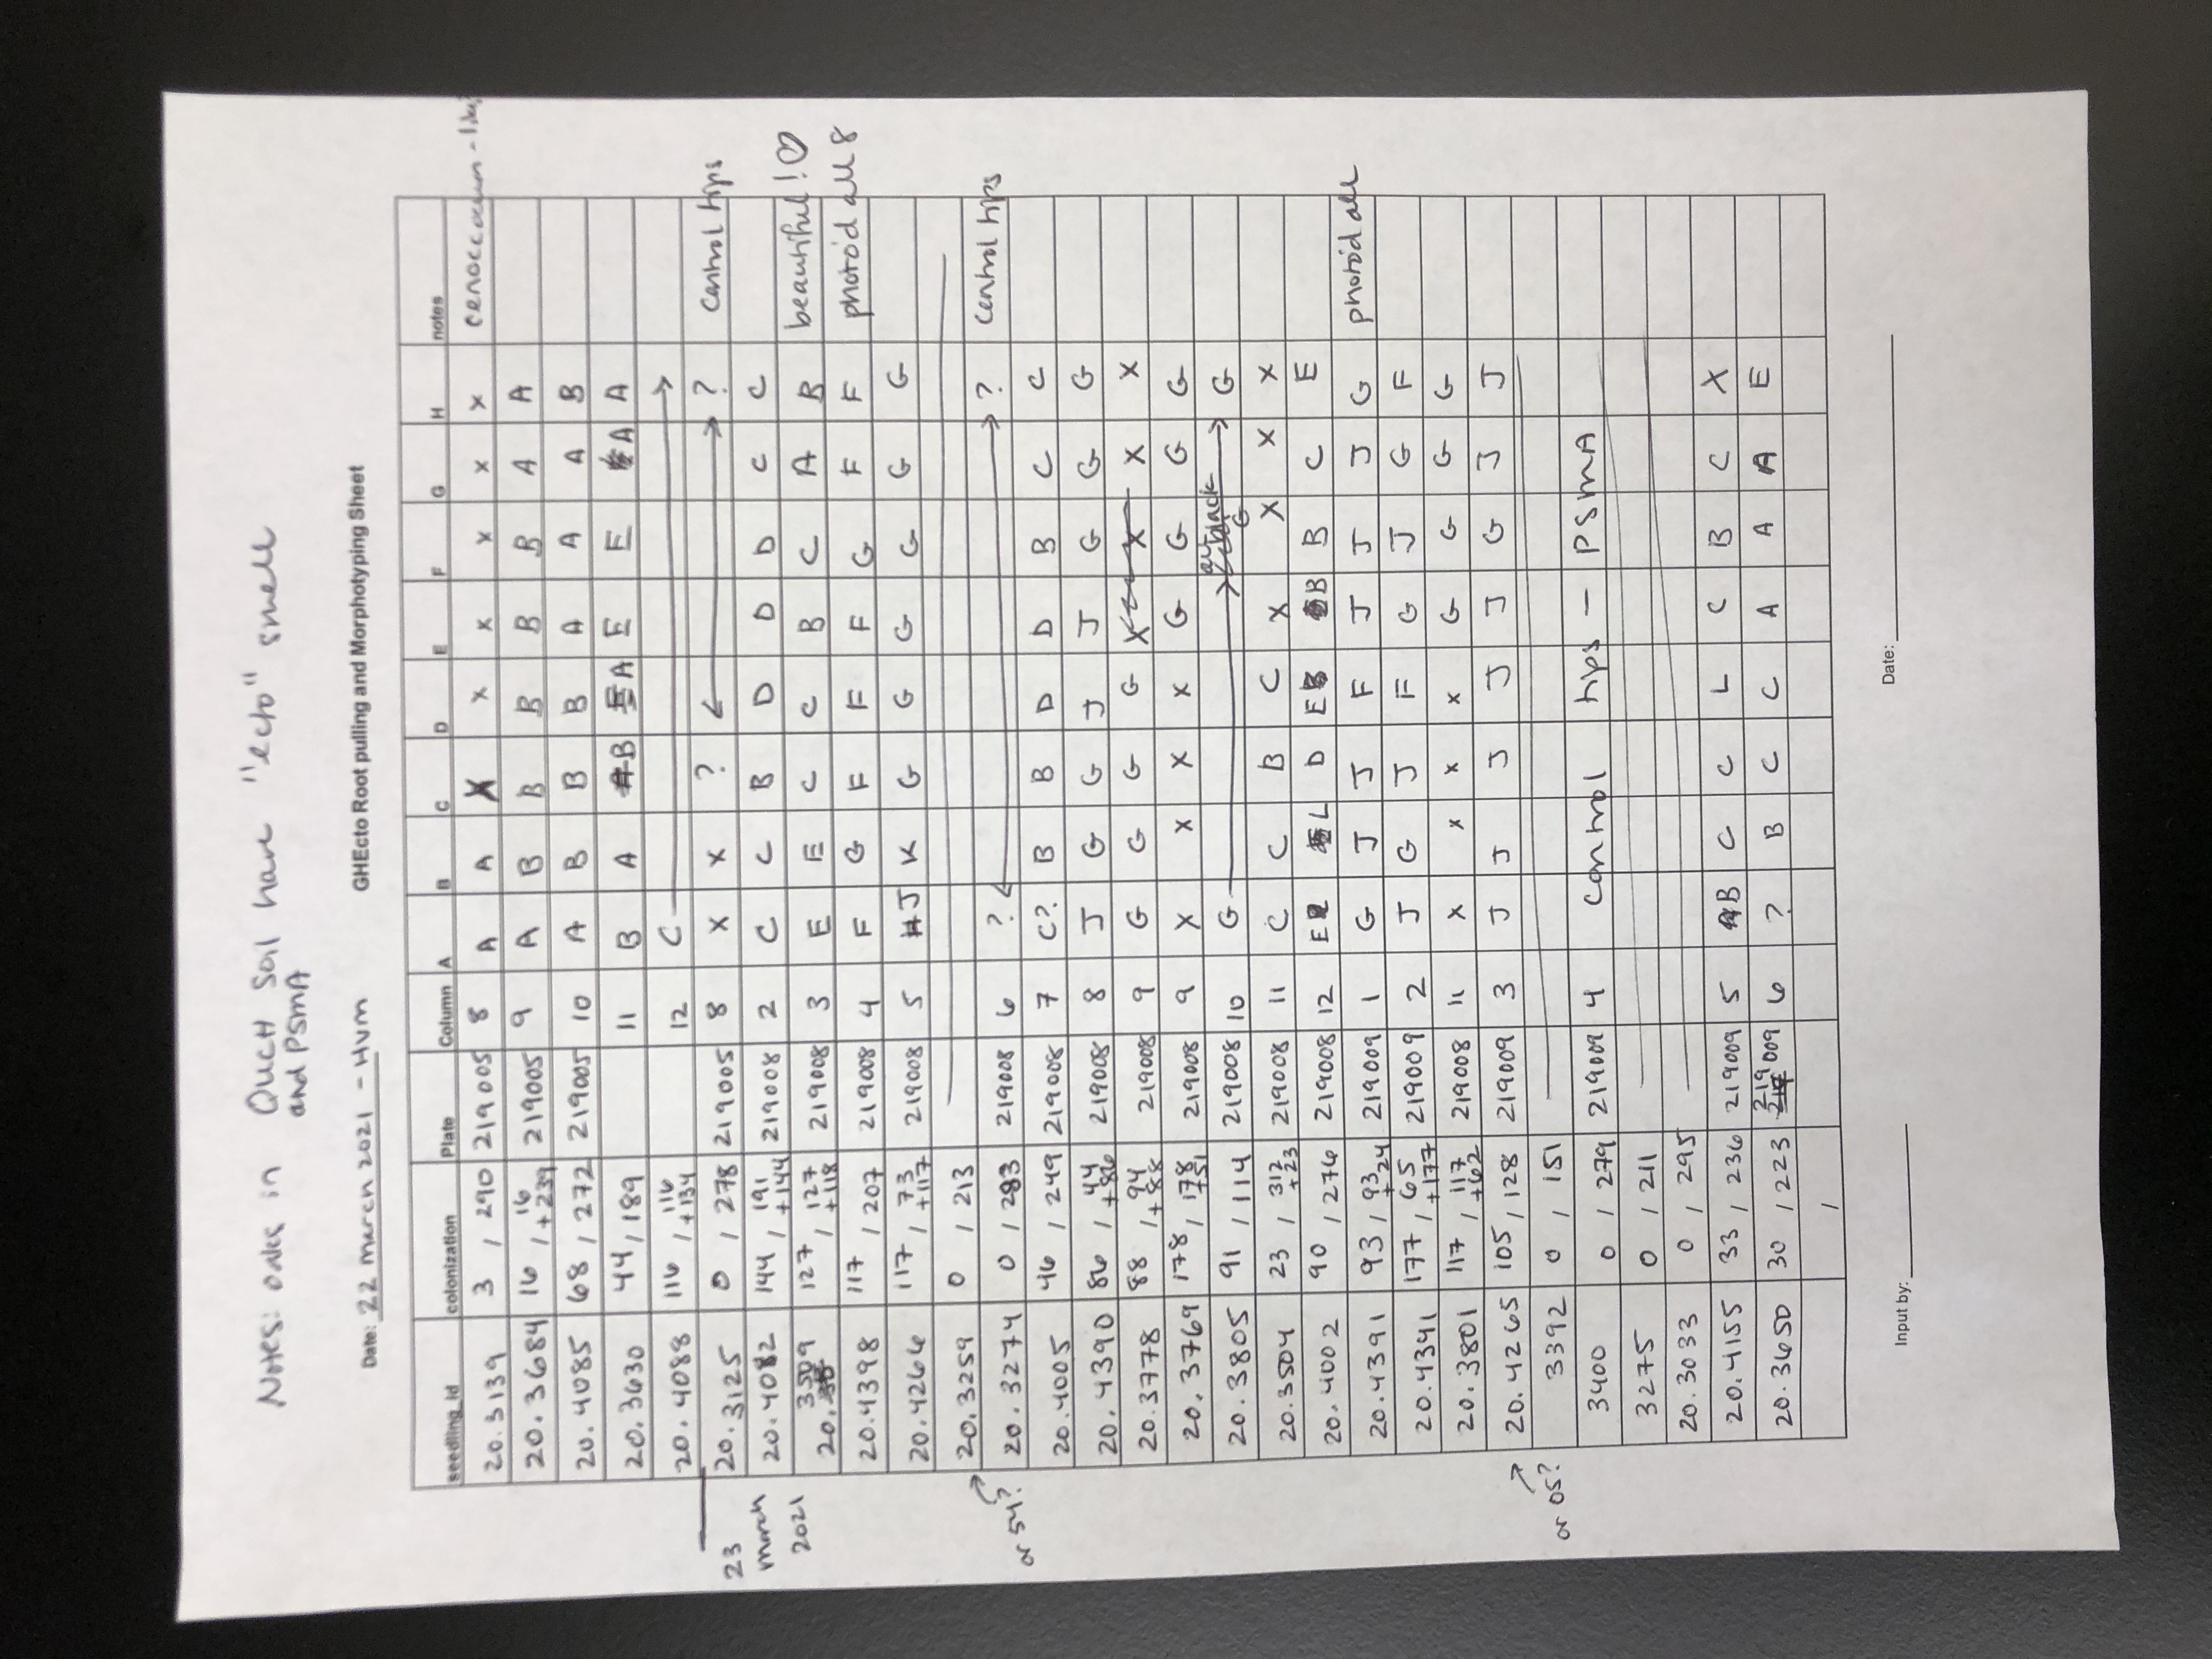 Notes: oaks in QUCH Soil have "ecto" smell
and PSMA
Date: 22 march 2021 - HVM GHEcto Root pulling and Morphotyping Sheet
seedling_id colonization Plate Column A B C D E F G H notes
20.3139 3 / 290 219005 8 A A X x x x x x cenococcum-like?
20.3684 16 / 16 +239 219005 9 A B B B B B A A
20.4085 68 / 272 219005 10 A B B B A A A B
20.3630 44 / 189 11 B A B A E E A A
20.4088 116 / 116 +134 12 C →
23 march 2021
20.3125 0 / 278 219005 8 X X ? ↔ ? control tips
20.4082 144 / 191 +144 219008 2 C C B D D D C C
20.3509 127 / 127 +118 219008 3 E E C C B C A B beautiful! ♡
20.4398 117 / 207 219008 4 F G F F F G F F photo'd all 8
20.4266 117 / 73 +117 219008 5 J K G G G G G G
20.3259 0 / 213
or 54?
20.3274 0 / 283 219008 6 ? ↔ ? control tips
20.4005 46 / 249 219008 7 C? B B D D B C C
20.4390 86 / 44 +86 219008 8 J G G J J G G G
20.3778 88 / 94 +88 219008 9 G G G G X X X X
20.3769 178 / 178 +51 219008 9 X X X X G G G G
20.3805 91 / 114 219008 10 G → black G → G
20.3504 23 / 312 +23 219008 11 C C B C X X X X
20.4002 90 / 276 219008 12 E L D E B B C E
20.4391 93 / 93 +24 219009 1 G J J F J J J G photo'd all
20.4341 177 / 65 +177 219009 2 J G J F G J G F
20.3801 117 / 117 +62 219008 11 X x x x G G G G
20.4265 105 / 128 219009 3 J J J J J G J J
or 05?
3392 0 / 151
3400 0 / 279 219009 4 control tips - PSMA
3275 0 / 211
20.3033 0 / 295
20.4155 33 / 236 219009 5 B C C L C B C X
20.3650 30 / 223 219009 6 ? B C C A A A E
/
Input by: Date: